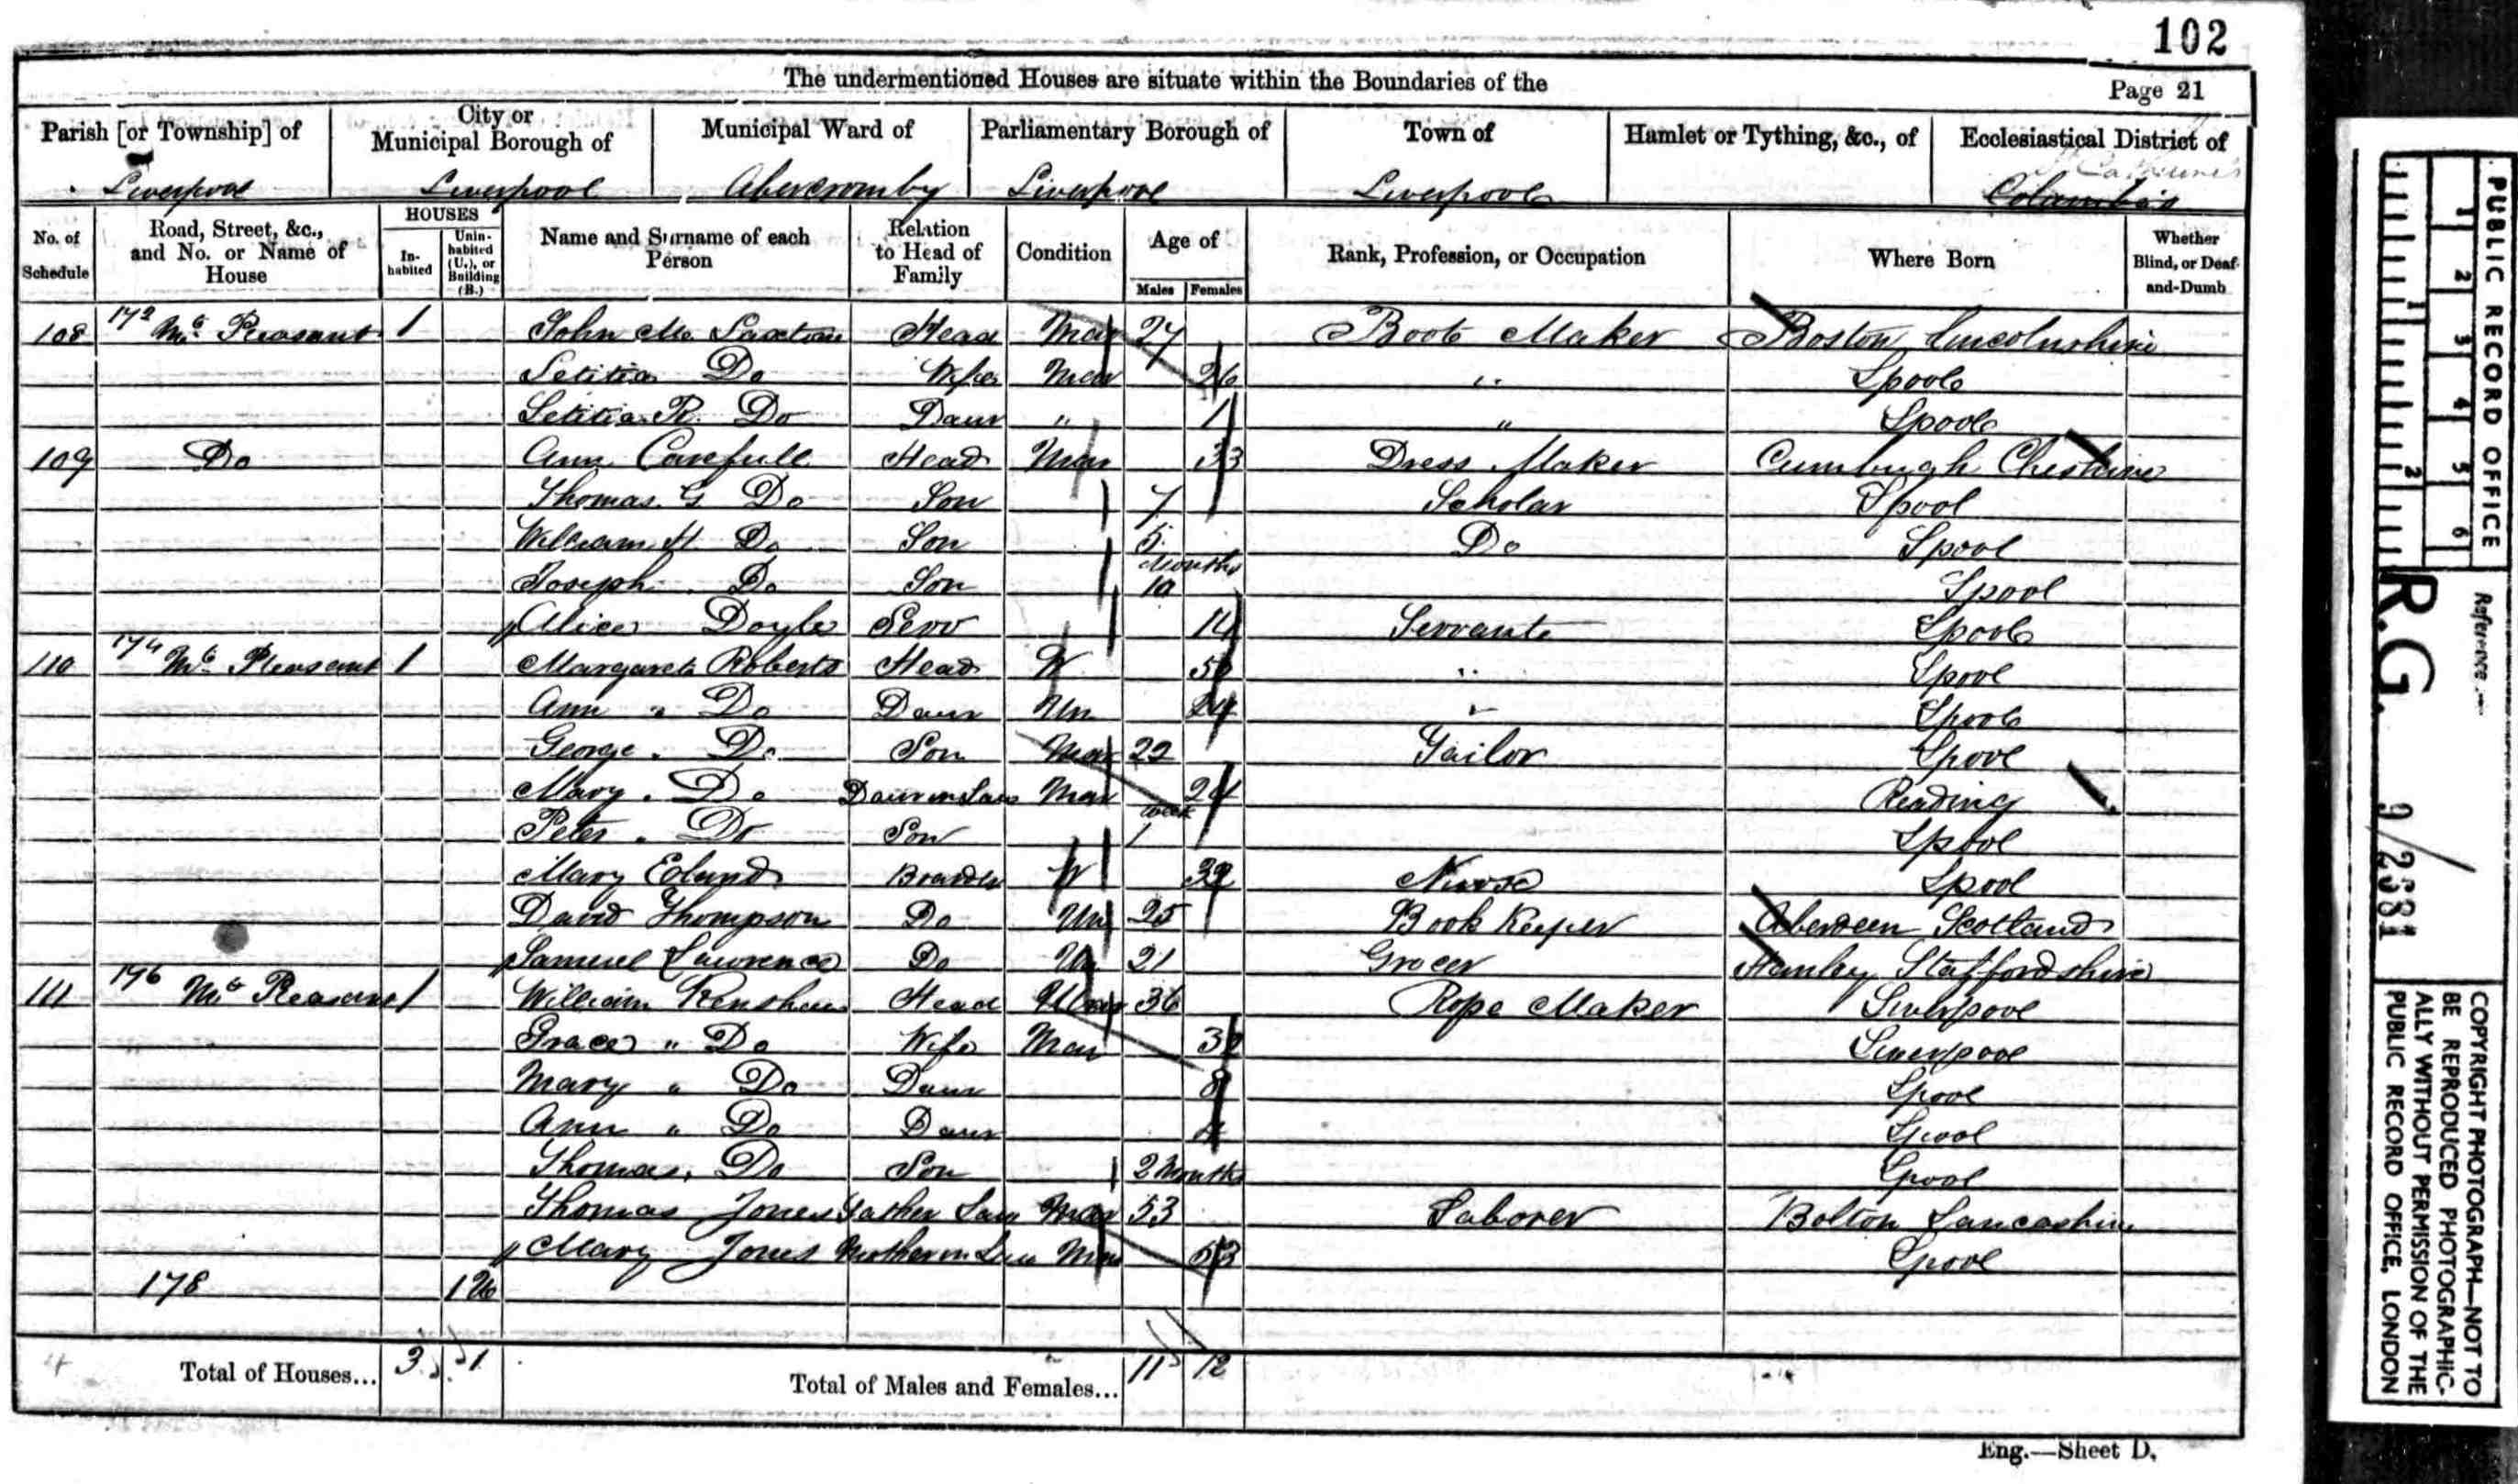 102
The undermentioned Houses are situate within the Boundaries of the
Page 21
Parish [or Township] of
City or Municipal Borough of
Municipal Ward of
Parliamentary Borough of
Town of
Hamlet or Tything, &c., of
Ecclesiastical District of
Liverpool Liverpool Abercromby Liverpool Liverpool St Catherine's
No. of Schedule
Road, Street, &c., and No. or Name of House
HOUSES
In-habited
Unin-habited (U.), or Building (B.)
Name and Surname of each Person
Relation to Head of Family
Condition
Age of
Males Females
Rank, Profession, or Occupation
Where Born
Whether Blind, or Deaf-and-Dumb
108 172 Mt Pleasant 1 John Mc Saxton Head Mar 27 Boot Maker Boston Lincolnshire
Letitia Do Wife Mar 26 " Lpool
Letitia R. Do Daur " 1 " Lpool
109 Do Ann Carefull Head Mar 33 Dress Maker Cheshire
Thomas G Do Son 7 Scholar Lpool
William H Do Son 5 Do Lpool
Joseph Do Son Months 10 Lpool
Alice Doyle Serv 14 Servant Lpool
110 174 Mt Pleasant 1 Margaret Roberts Head W " Lpool
Ann " Do Daur Un 24 " Lpool
George Do Son Mar 22 Tailor Lpool
Mary Do Daur in Law Mar Reading
Peter Do Son week 1 Lpool
Mary Boarder W Nurse Lpool
David Thompson Do Un 25 Book Keeper Aberdeen Scotland
Samuel Lawrence Do Un 21 Grocer Hanley Staffordshire
111 176 Mt Pleasant 1 William Renshaw Head Mar 36 Rope Maker Liverpool
Grace " Do Wife Mar Liverpool
Mary " Do Daur 8 Lpool
Ann " Do Daur 4 Lpool
Thomas Do Son 2 Months Lpool
Thomas Jones Father Law Mar 53 Laborer Bolton Lancashire
Mary Jones Mother in Law Mar 53 Lpool
178 1
Total of Houses... 3 1
Total of Males and Females... 11 12
Eng.—Sheet D.
PUBLIC RECORD OFFICE
1 2 3 4 5 6
1 2
Reference:-
R.G. 9/2681
COPYRIGHT PHOTOGRAPH—NOT TO
BE REPRODUCED PHOTOGRAPHIC-
ALLY WITHOUT PERMISSION OF THE
PUBLIC RECORD OFFICE, LONDON